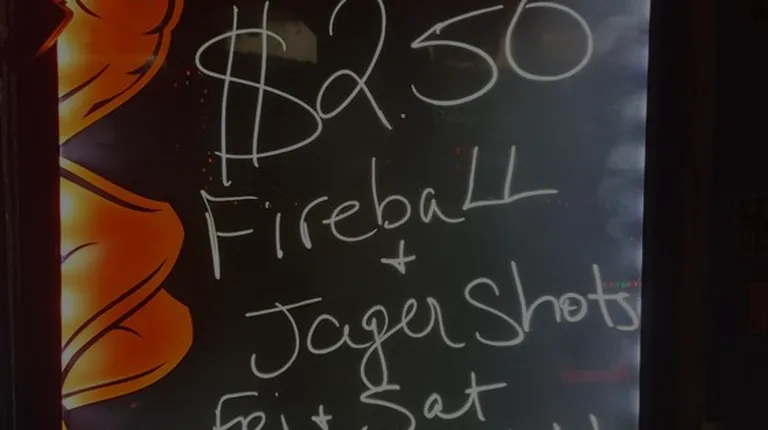 $2.50
FirebaLL
+
Jager Shots
Fri + Sat